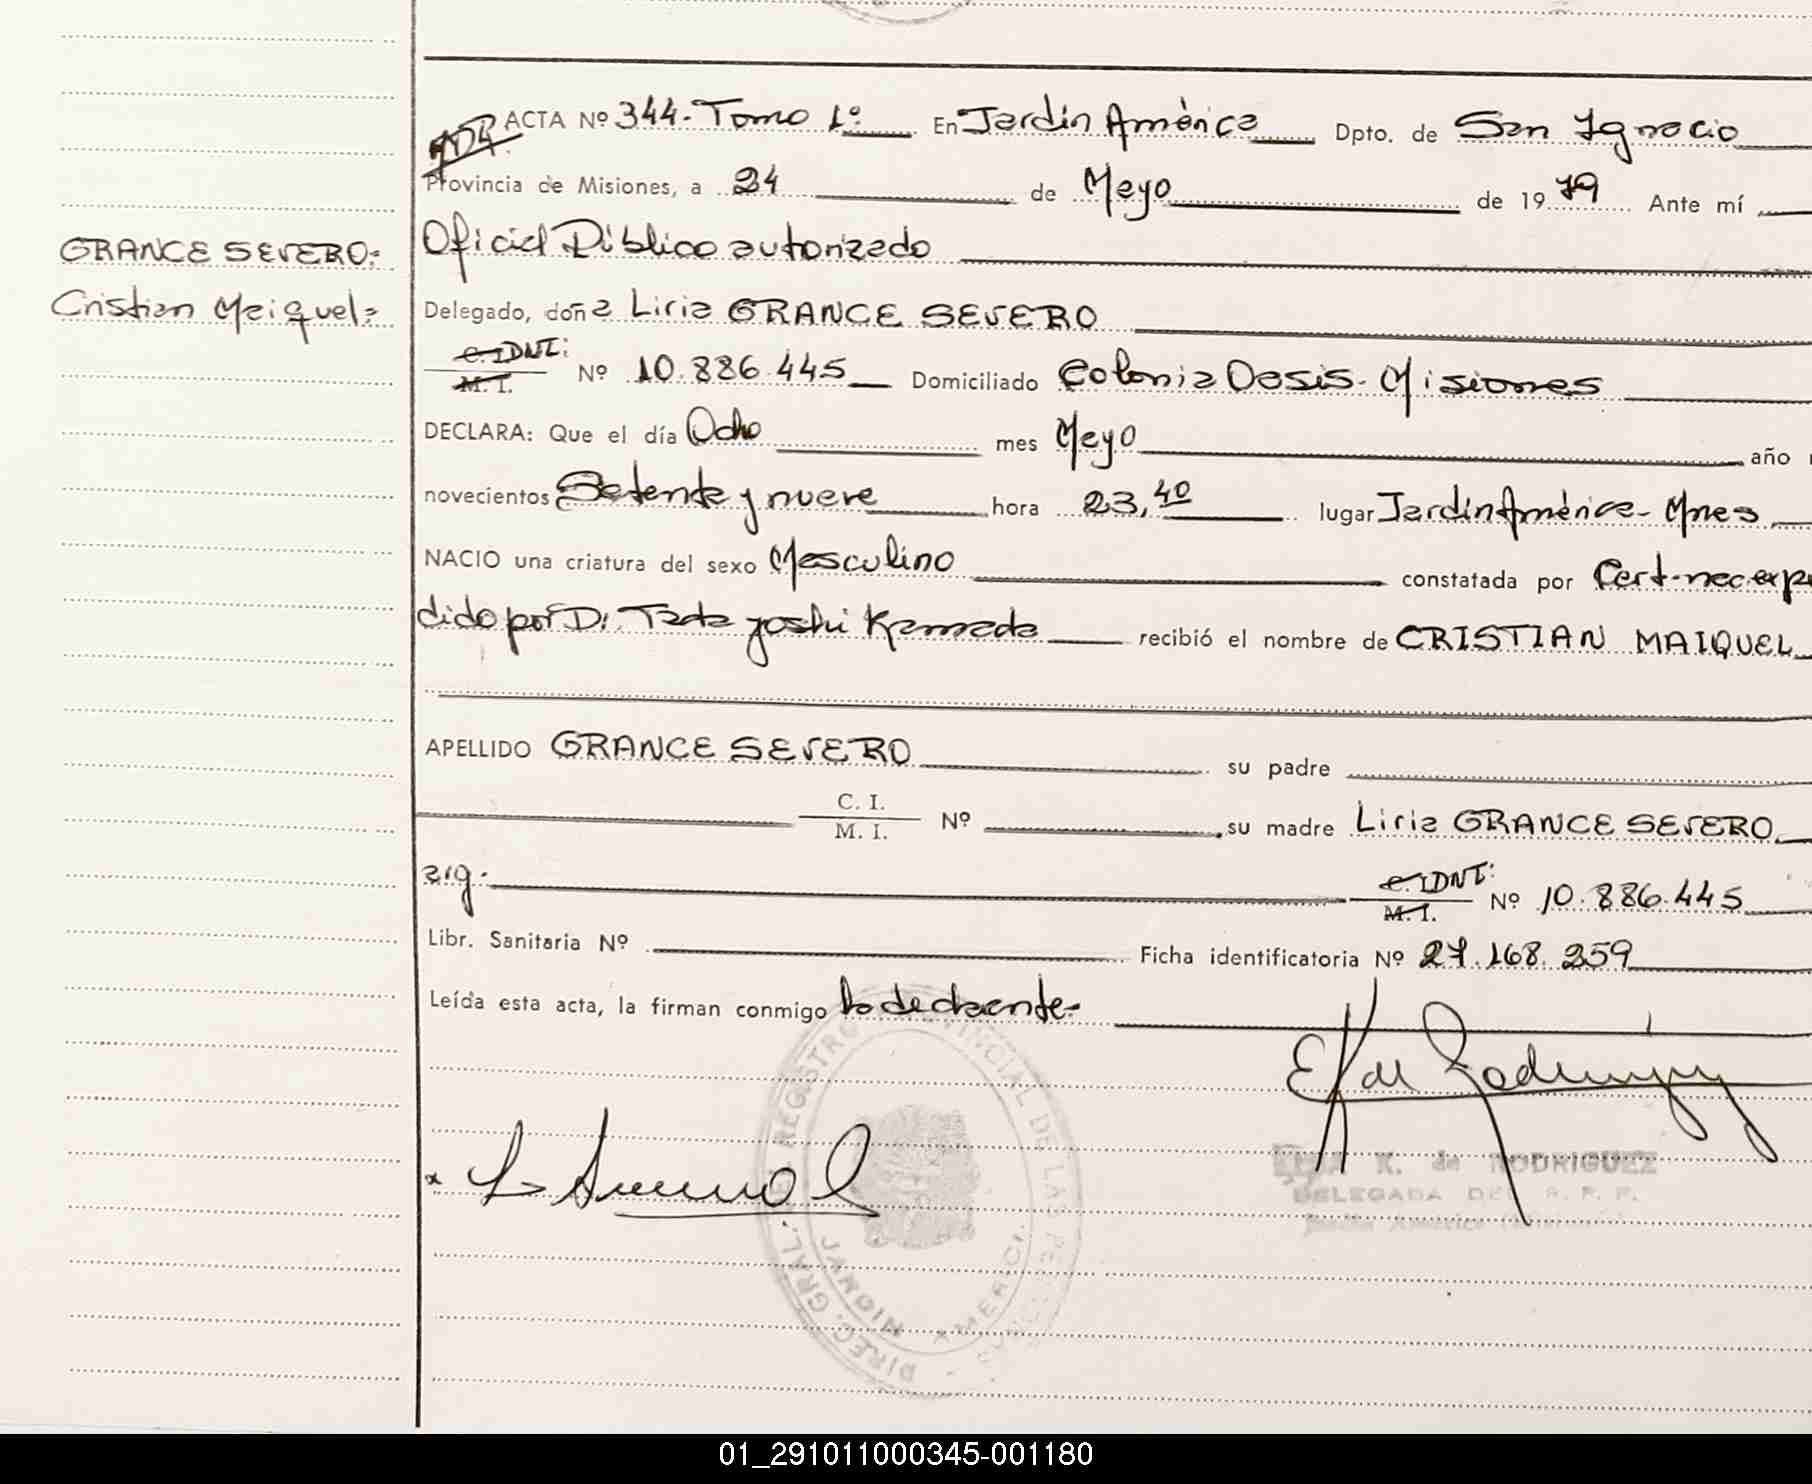 ACTA Nº 344. Tomo 1º En Jardín América Dpto. de San Ignacio
Provincia de Misiones, a 24 de Mayo de 1979 Ante mí
Oficial Público autorizado
GRANCE SEVERO:
Cristian Maiquel=
Delegado, doña Liria GRANCE SEVERO
C.IDNI:
M. I. Nº 10.886.445 Domiciliado Colonia Oasis. Misiones
DECLARA: Que el día Ocho mes Mayo año
novecientos Setenta y nueve hora 23,40 lugar Jardín América- Mnes
NACIO una criatura del sexo Masculino constatada por Cert. nac. expe
dido por Dr. Tada yoshi Kameda recibió el nombre de CRISTIAN MAIQUEL
APELLIDO GRANCE SEVERO su padre
C. I.
M. I. Nº su madre Liria GRANCE SEVERO
arg.
C.IDNI:
M. I. Nº 10.886.445
Libr. Sanitaria Nº Ficha identificatoria Nº 27.168.259
Leída esta acta, la firman conmigo la declarante-
K. de RODRIGUEZ
DELEGADA DEL R. P. P.
DIREC. GRAL. DEL REGISTRO PROVINCIAL DE LAS PERSONAS
01_291011000345-001180